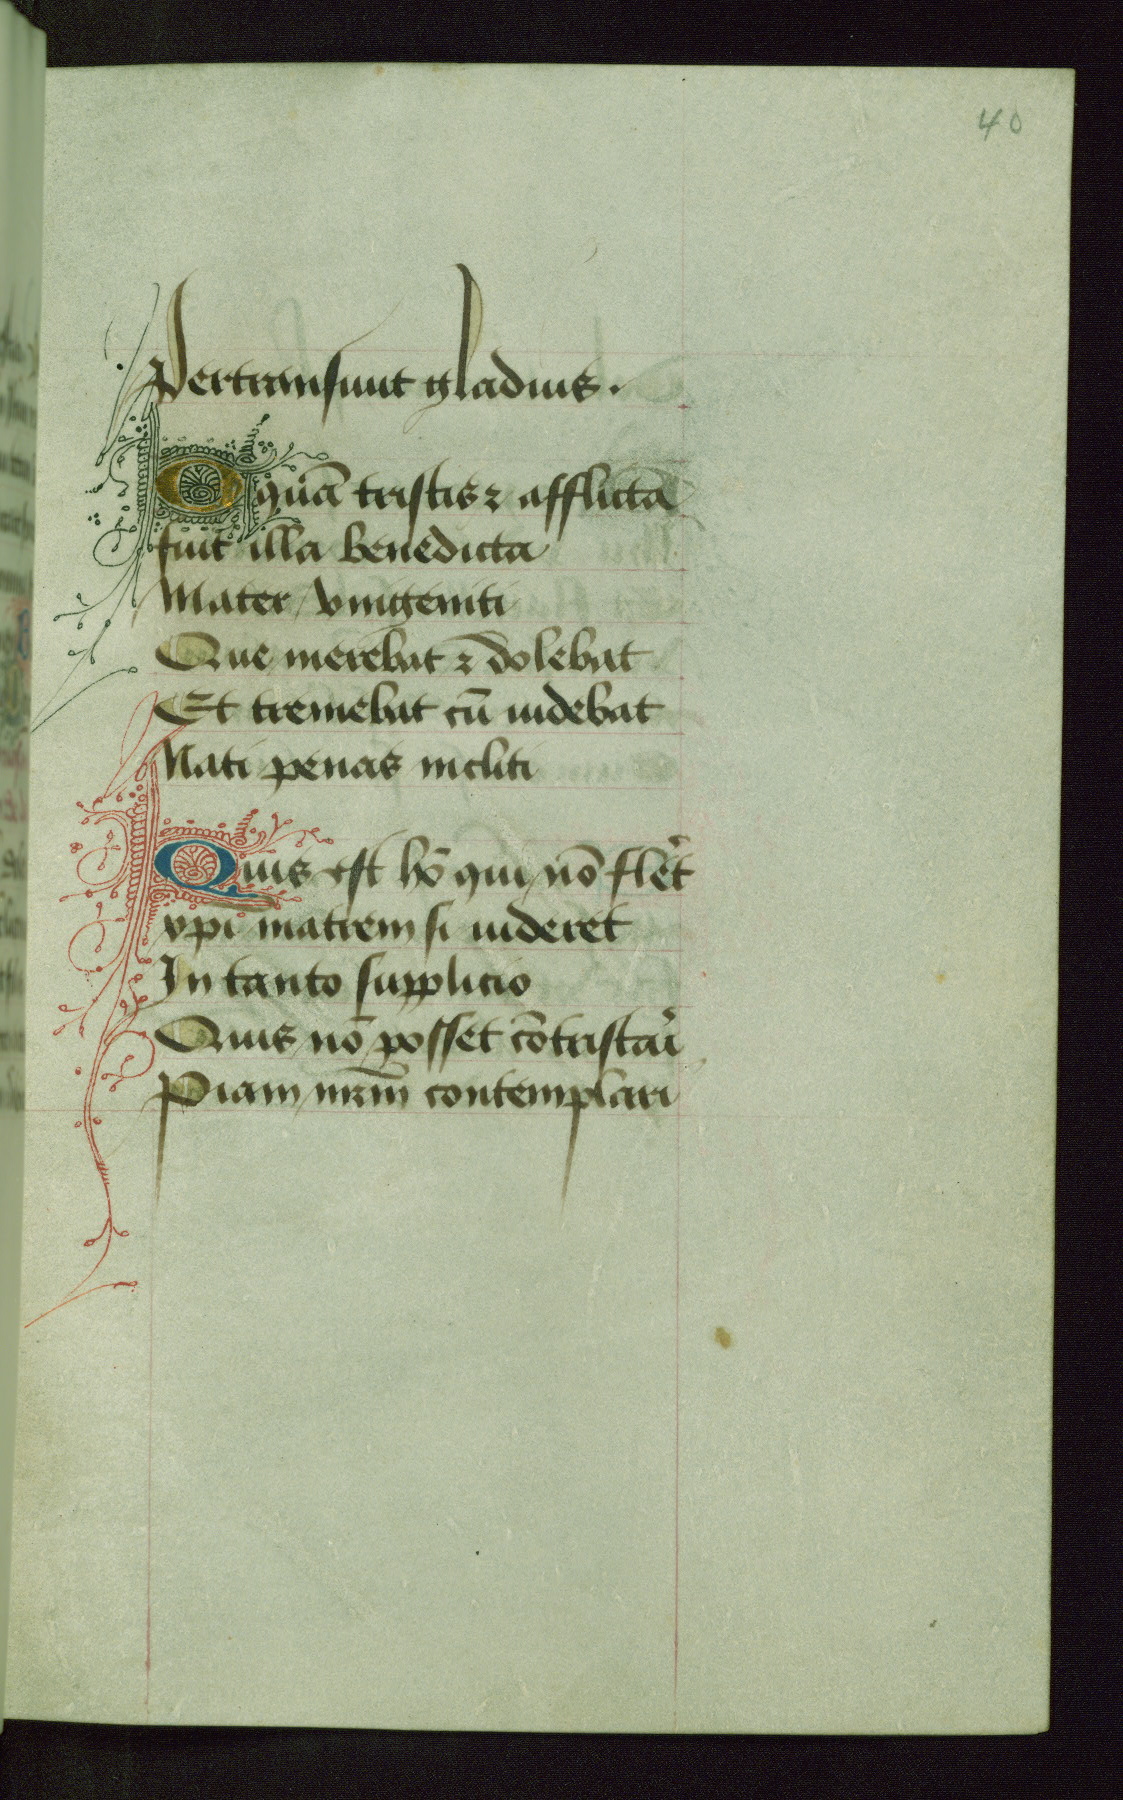 40
Pertransiuit gladius.
O quā tristis ⁊ afflicta
fuit illa benedicta
Mater vnigeniti
Que merebat ⁊ dolebat
Et tremebat cū uidebat
Nati penas incliti
Quis est hō qui nō flēt
xpi matrem si uideret
In tanto supplicio
Quis nō posset cōtristari
Piam mrēm contemplari